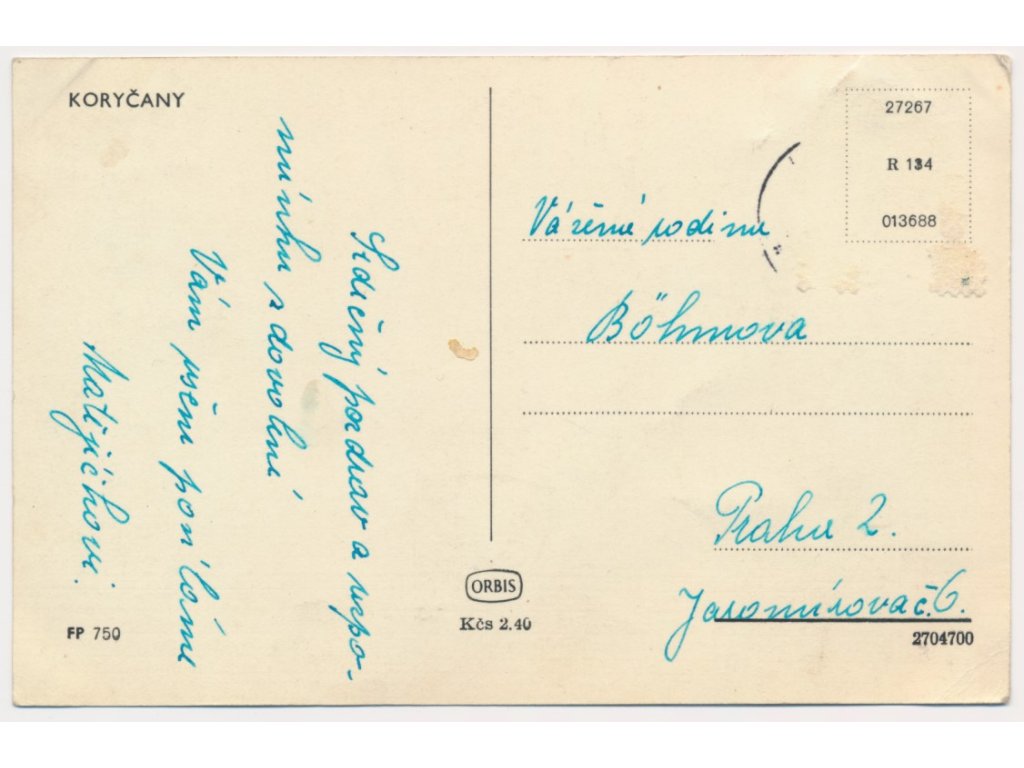 KORYČANY
Srdečný pozdrav a vzpo-
mínku s dovolené
Vám všem posíláme
Matějíčkovi.
FP 750
ORBIS
Kčs 2.40
27267
R 134
013688
Vážená rodina
Böhmova
Praha 2.
Jaromírova č. 6.
2704700